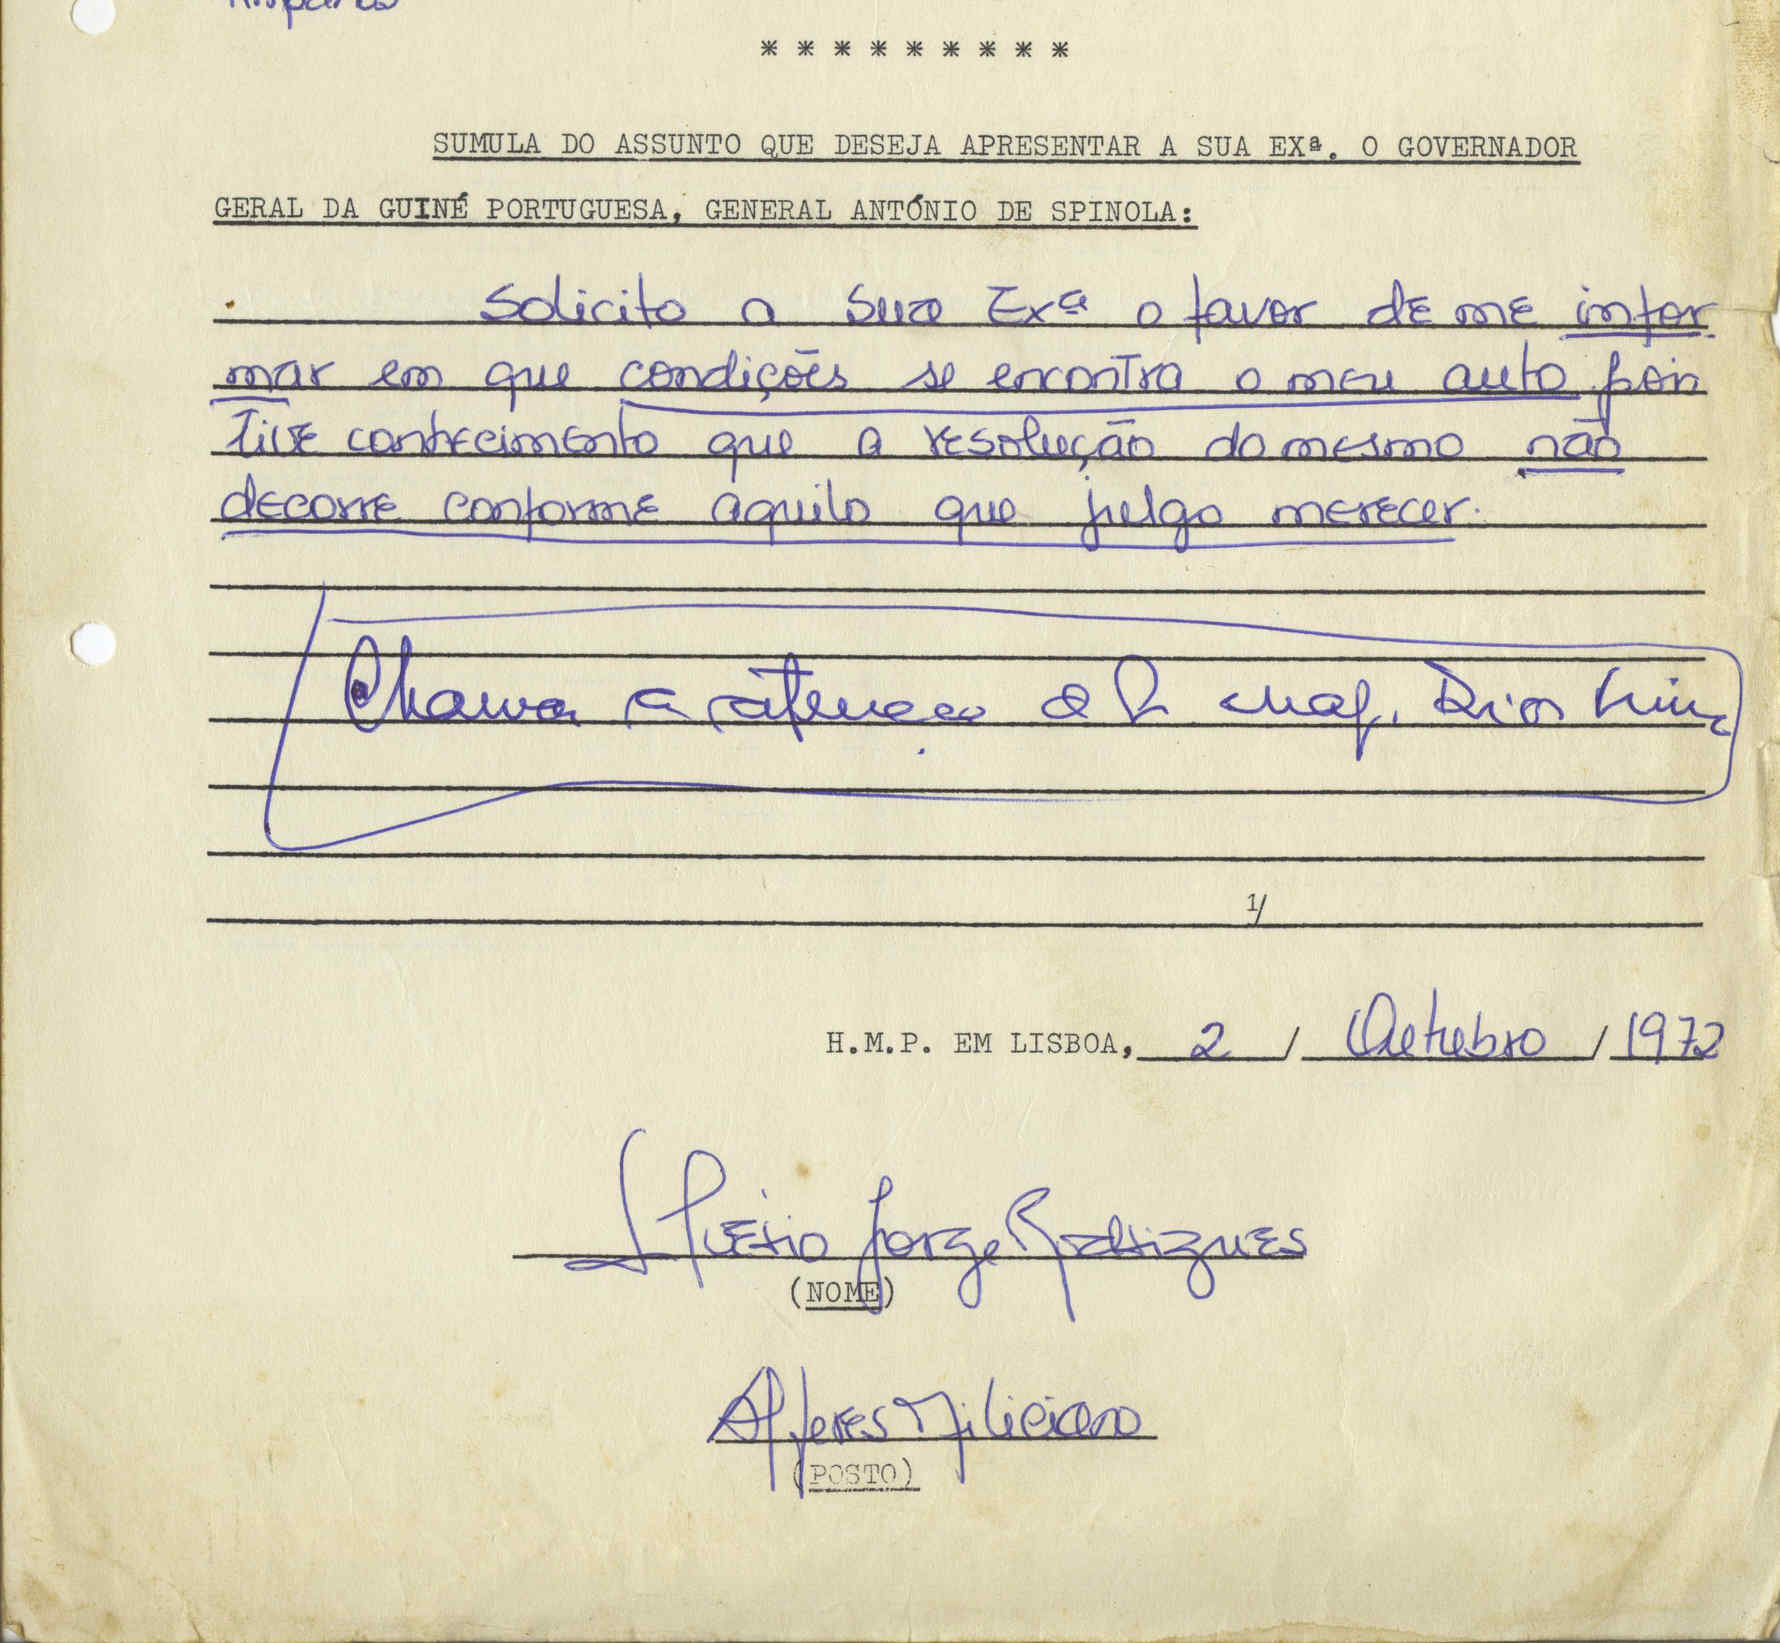 * * * * * * * * *
SUMULA DO ASSUNTO QUE DESEJA APRESENTAR A SUA EXª. O GOVERNADOR
GERAL DA GUINÉ PORTUGUESA, GENERAL ANTÓNIO DE SPINOLA:
Solicito a Sua Exª o favor de me infor
mar em que condições se encontra o meu auto pois
Tive conhecimento que a resolução do mesmo não
decorre conforme aquilo que julgo merecer.
Chamar a atenção
1/
H.M.P. EM LISBOA, 2 / Outubro / 1972
Jorge Rodrigues
(NOME)
Alferes Miliciano
(POSTO)